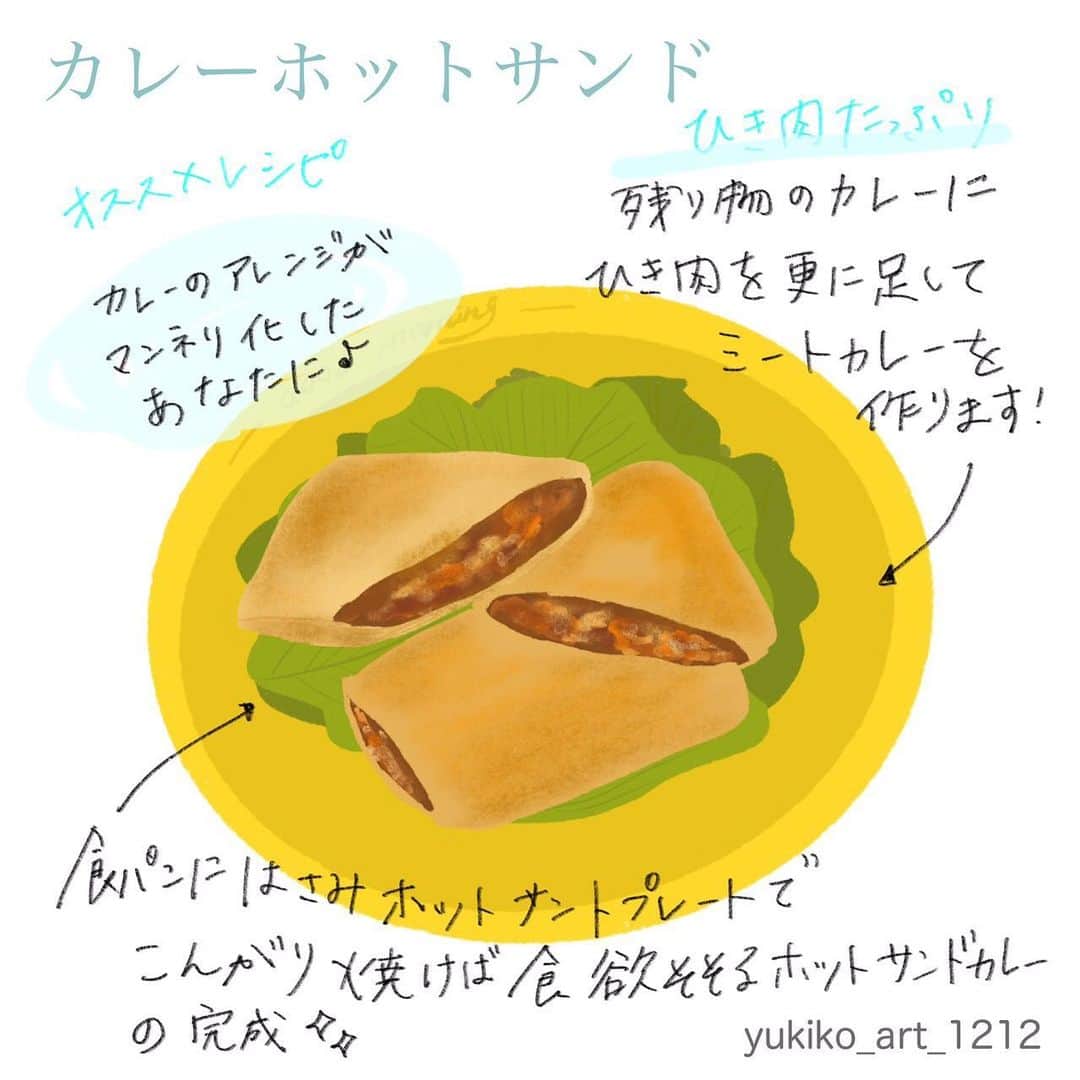 カレーホットサンド
オススメレシピ
カレーのアレンジが
マンネリ化した
あなたに♪
ひき肉たっぷり
残り物のカレーに
ひき肉を更に足して
ミートカレーを
作ります!
morning
食パンにはさみホットサンドプレートで
こんがり焼けば食欲そそるホットサンドカレー
の完成
yukiko_art_1212